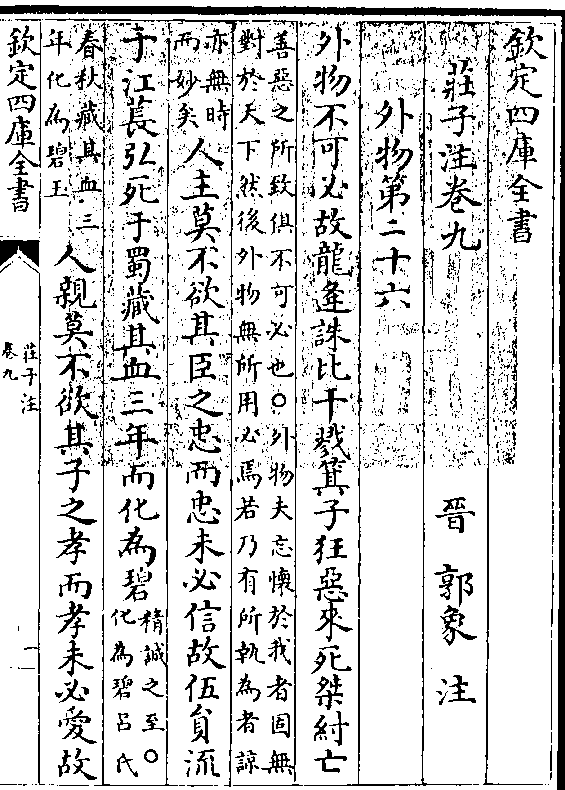 欽定四庫全書
莊子注卷九
晉 郭象 注
外物第二十六
外物不可必故龍逄誅比干戮箕子狂惡來死桀紂亡
善惡之所致俱不可必也○外物夫忘懷於我者固無
對於天下然後外物無所用必焉若乃有所執為者諒
亦無時
而妙矣
人主莫不欲其臣之忠而忠未必信故伍員流
于江萇弘死于蜀藏其血三年而化為碧
精誠之至○
化為碧呂氏
春秋藏其血三
年化為碧玉
人親莫不欲其子之孝而孝未必愛故
欽定四庫全書
莊子注
卷九
一